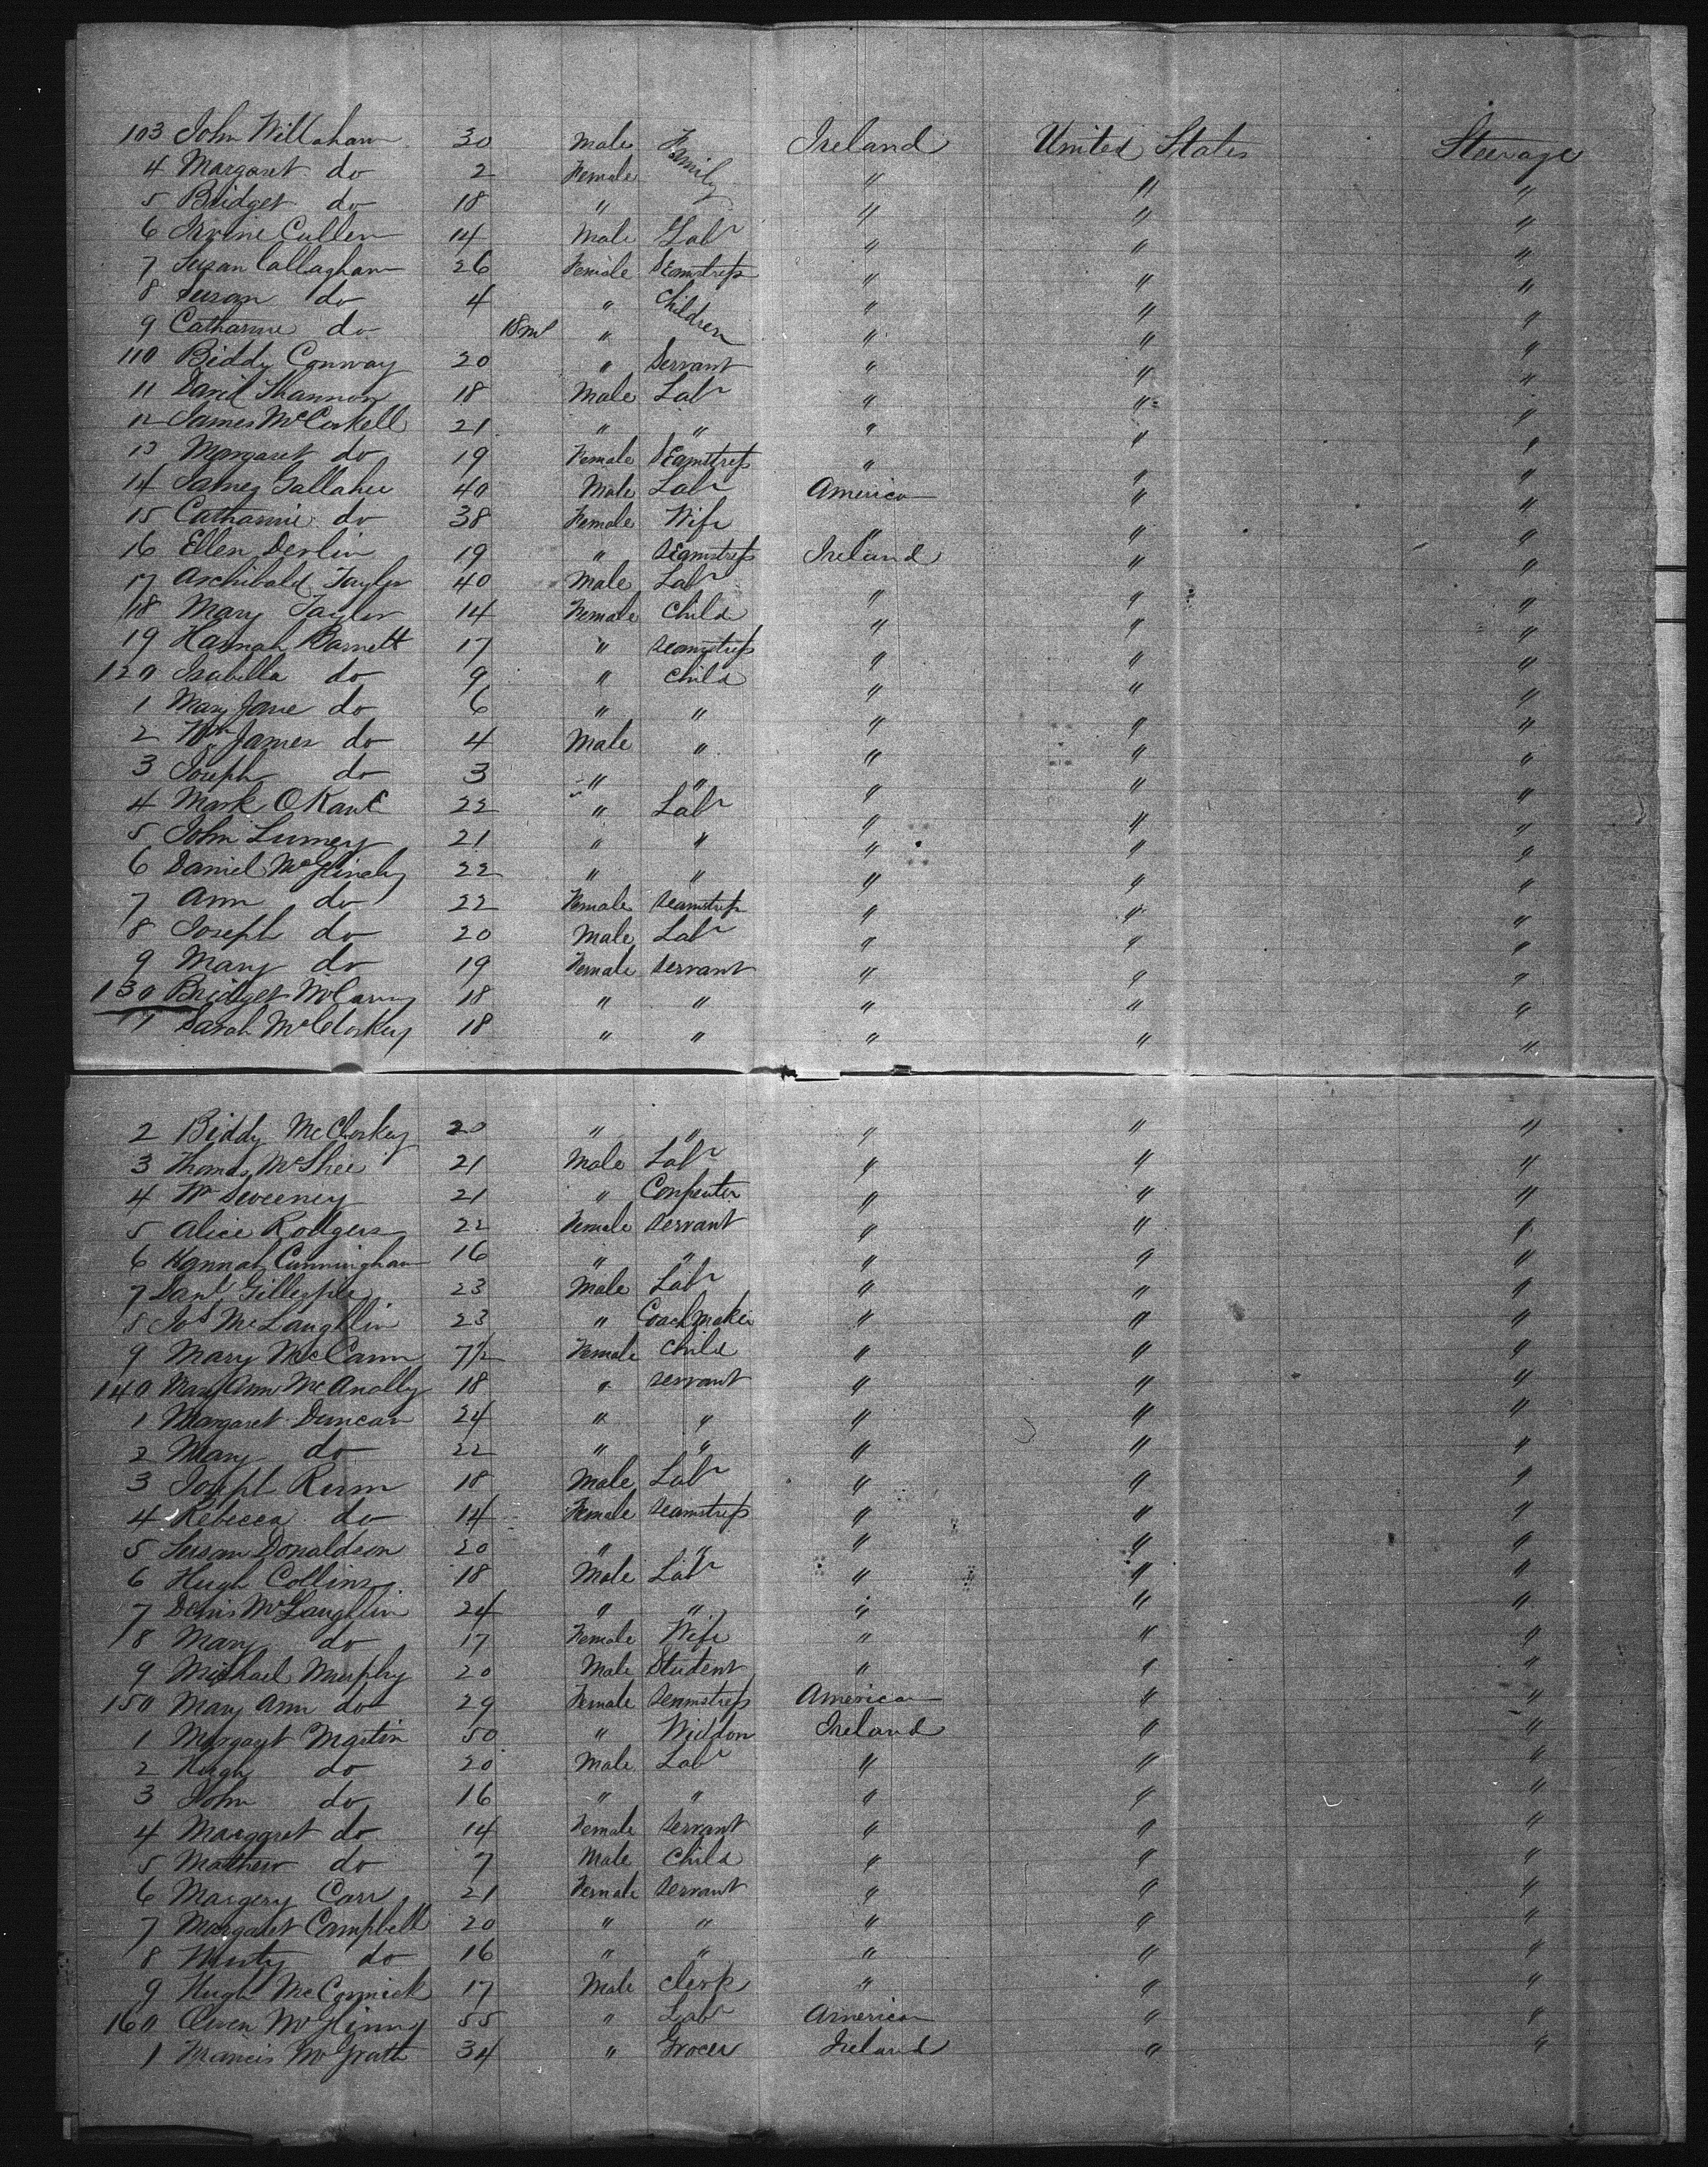 103 John Willaham 30 Male Family Ireland United States Steerage
4 Margaret do 2 Female " " "
5 Bridget do 18 " " " "
6 Irvine Cullen 14 Male Labr " " "
7 Susan Callaghan 26 Female Seamstress " " "
8 Susan do 4 " Children " " "
9 Catharine do 18 ms " " " "
110 Biddy Conway 20 " Servant " " "
11 David Shannon 18 Male Labr " " "
12 James McCorkell 21 " " " " "
13 Margaret do 19 Female Seamstress " " "
14 James Gallaher 40 Male Labr America " "
15 Catharine do 38 Female Wife " " "
16 Ellen Devlin 19 " Seamstress Ireland " "
17 Archibald Taylor 40 Male Labr " " "
118 Mary Taylor 14 Female Child " " "
19 Hannah Barnett 17 " Seamstress " " "
120 Isabella do 9 " Child " " "
1 Mary Jane do 6 " " " " "
2 Wm James do 4 Male " " " "
3 Joseph do 3 " " " " "
4 Mark O Kane 22 " Labr " " "
5 John Lumey 21 " " " " "
6 Daniel McGlinchy 22 " " " " "
7 Ann do 22 Female Seamstress " " "
8 Joseph do 20 Male Labr " " "
9 Mary do 19 Female Servant " " "
130 Bridget 18 " " " " "
1 Sarah McCloskey 18 " " " " "
2 Biddy McCloskey 20 " " " " "
3 Thomas McGhee 21 Male Labr " " "
4 Wm Sweeney 21 " Carpenter " " "
5 Alice Rodgers 22 Female Servant " " "
6 Hannah Cunningham 16 " " " " "
7 Danl Gillespie 23 Male Labr " " "
8 Jos McLaughlin 23 " Coachmaker " " "
9 Mary McCann 7½ Female Child " " "
140 Mary Ann McAnally 18 " Servant " " "
1 Margaret Duncan 24 " " " " "
2 Mary do 22 " " " " "
3 Joseph 18 Male Labr " " "
4 Rebecca do 14 Female Seamstress " " "
5 Susan Donaldson 20 " " " " "
6 Hugh Collins 18 Male Labr " " "
7 Denis McLaughlin 24 " " " " "
8 Mary do 17 Female Wife " " "
9 Michael Murphy 20 Male Student " " "
150 Mary Ann do 29 Female Seamstress America " "
1 Margaret Martin 50 " Widdow Ireland " "
2 Hugh do 20 Male Labr " " "
3 John do 16 " " " " "
4 Margaret do 14 Female Servant " " "
5 Mathew do 7 Male Child " " "
6 Margery Carr 21 Female Servant " " "
7 Margaret Campbell 20 " " " " "
8 do 16 " " " " "
9 Hugh McCormick 17 Male Clerk " " "
160 Owen McGlinny 55 " Labr America " "
1 Francis McGrath 34 " Grocer Ireland " "